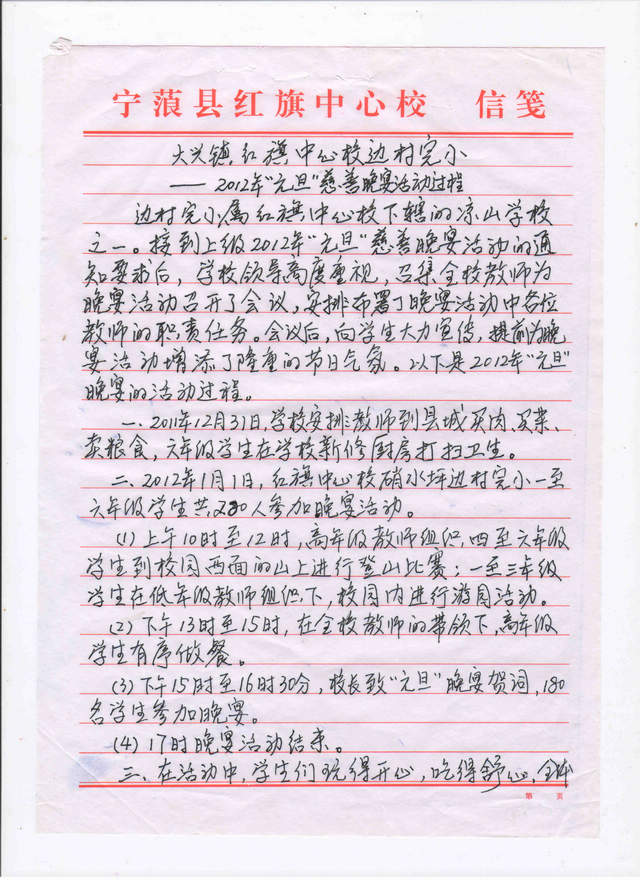 宁蒗县红旗中心校 信笺
大兴镇红旗中心校边村完小
——2012年“元旦”慈善晚宴活动过程
边村完小属红旗中心校下辖的凉山学校
之一。接到上级2012年“元旦”慈善晚宴活动的通
知要求后，学校领导高度重视，召集全校教师为
晚宴活动召开了会议，安排布署了晚宴活动中各位
教师的职责任务。会议后，向学生大力宣传，提前为晚
宴活动增添了隆重的节日气氛。以下是2012年“元旦”
晚宴的活动过程。
一、2011年12月31日，学校安排教师到县城买肉、买菜、
卖粮食，六年级学生在学校新修厨房打扫卫生。
二、2012年1月1日，红旗中心校硝水坪边村完小一至
六年级学生共人参加晚宴活动。
(1)上午10时至12时，高年级教师组织，四至六年级
学生到校园西面的山上进行登山比赛；一至三年级
学生在低年级教师组织下，校园内进行游园活动。
(2)下午13时至15时，在全校教师的带领下，高年级
学生有序做餐。
(3)下午15时至16时30分，校长致“元旦”晚宴贺词，180
名学生参加晚宴。
(4)17时晚宴活动结束。
三、在活动中，学生们玩得开心，吃得舒心，全体
第 页